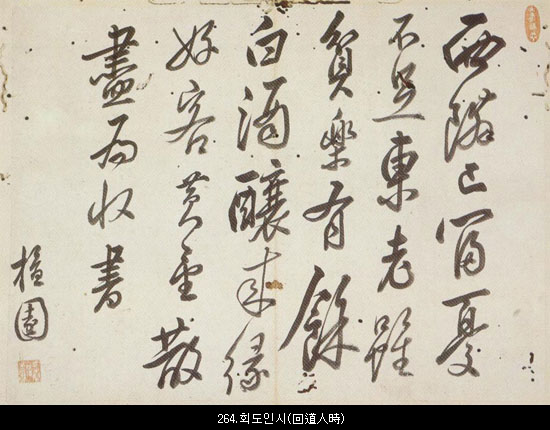 西隣已富憂
不足東老雖
貧樂有餘
白酒釀來緣
好客黃金散
盡為收書
檀園
264.회도인시(回道人時)